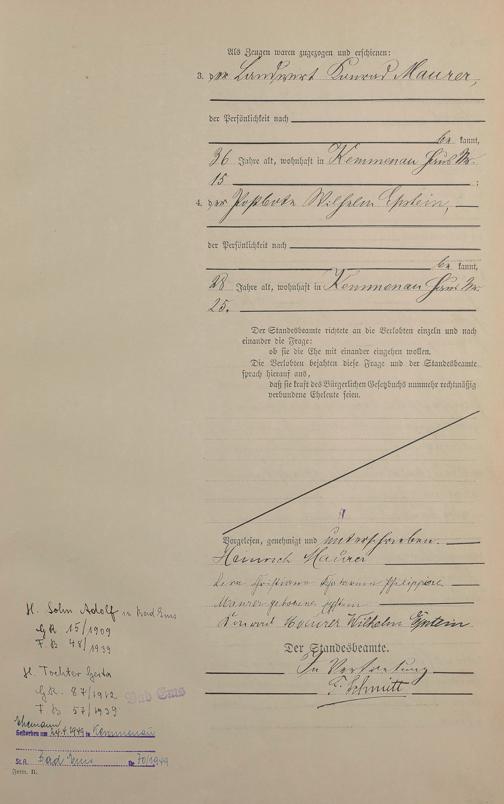 Als Zeugen waren zugezogen und erschienen:
3. der Landwirt Konrad Maurer,
der Persönlichkeit nach
be kannt,
36 Jahre alt, wohnhaft in Kemmenau Haus Nr.
15 ;
4. der Postbote Wilhelm Epstein,
der Persönlichkeit nach
be kannt,
28 Jahre alt, wohnhaft in Kemmenau Haus Nr.
25.
Der Standesbeamte richtete an die Verlobten einzeln und nach
einander die Frage:
ob sie die Ehe mit einander eingehen wollen.
Die Verlobten bejahten diese Frage und der Standesbeamte
sprach hierauf aus,
daß sie kraft des Bürgerlichen Gesetzbuchs nunmehr rechtmäßig
verbundene Eheleute seien.
Vorgelesen, genehmigt und unterschrieben.
Heinrich Maurer
Christiane Philippine
Maurer geborene Epstein
Konrad Maurer Wilhelm Epstein
Der Standesbeamte.
In Vertretung
F. Schmitt
H. Sohn Adolf in Bad Ems
GR 15/1909
F. B 48/1939
H. Tochter Gerta
GR. 87/1912
F B 57/1939
Bad Ems
Ehemann
Gestorben am 29.4.1949 in Kemmenau
St.A. Bad Ems Nr 70/1949
Form. B.